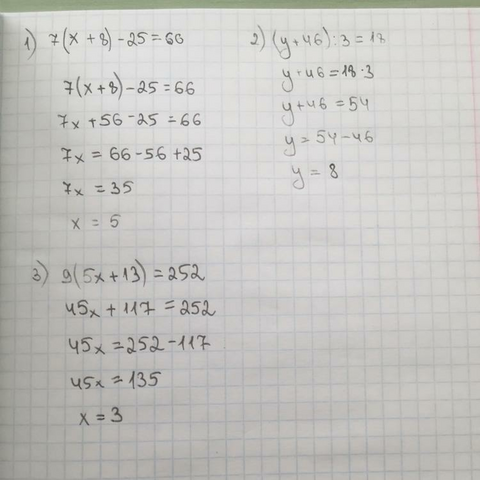 1) 7(x+8)-25=66
7(x+8)-25=66
7x+56-25=66
7x=66-56+25
7x=35
x=5
2) (y+46):3=18
y+46=18·3
y+46=54
y=54-46
y=8
3) 9(5x+13)=252
45x+117=252
45x=252-117
45x=135
x=3